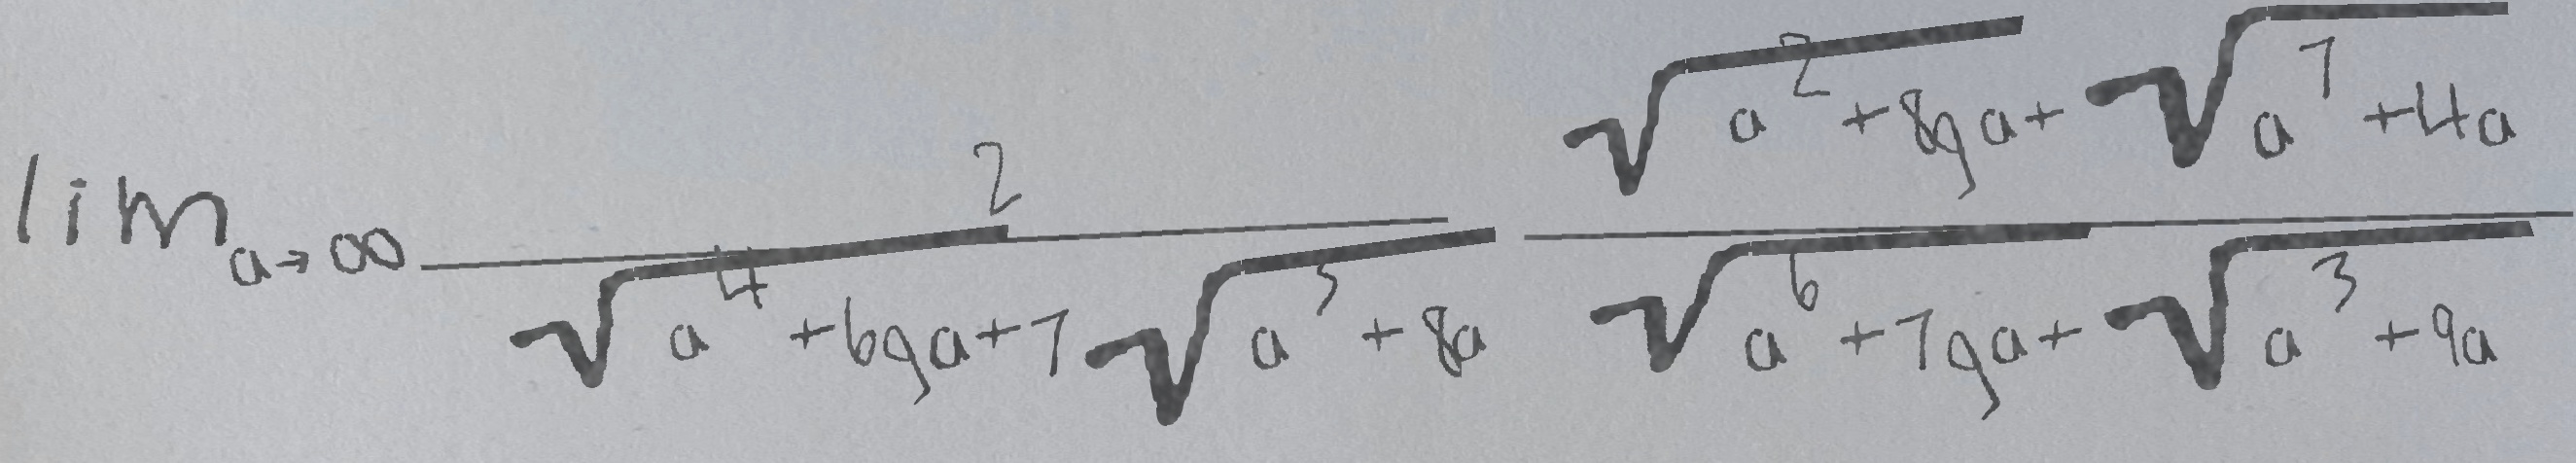 \lim_{a \to \infty} \frac{2}{\sqrt{a^4 + 6ga} + 7\sqrt{a^5 + 8a}} \frac{\sqrt{a^2 + 8ga} + \sqrt{a^7 + 4a}}{\sqrt{a^6 + 7ga} + \sqrt{a^3 + 9a}}